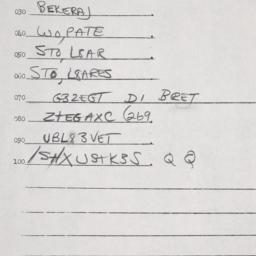 030 BEKERAJ
040 WO, PATE
050 STO, L8AR
060 STO, L8ARES
070 G3ZEGT DI BRET
080 ZTEGAXC (269.
090 UBL83VET
100 Q Q